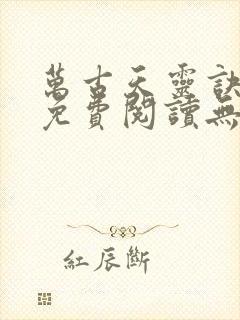 萬古天靈訣
免費閱讀無
紅辰斷